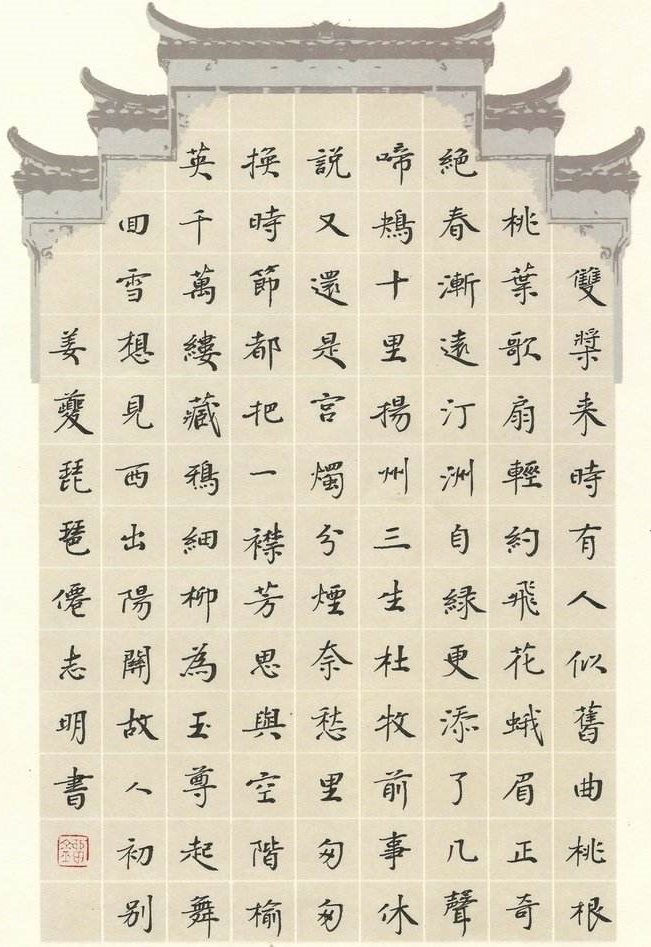 雙槳来時有人似舊曲桃根
桃葉歌扇輕約飛花蛾眉正奇
絕春漸遠汀洲自緑更添了几聲
啼鴂十里揚州三生杜牧前事休
說又還是宮燭分煙奈愁里匆匆
換時節都把一襟芳思與空階榆
英千萬縷藏鴉細柳為玉尊起舞
囬雪想見西出陽關故人初別
姜夔琵琶僊志明書